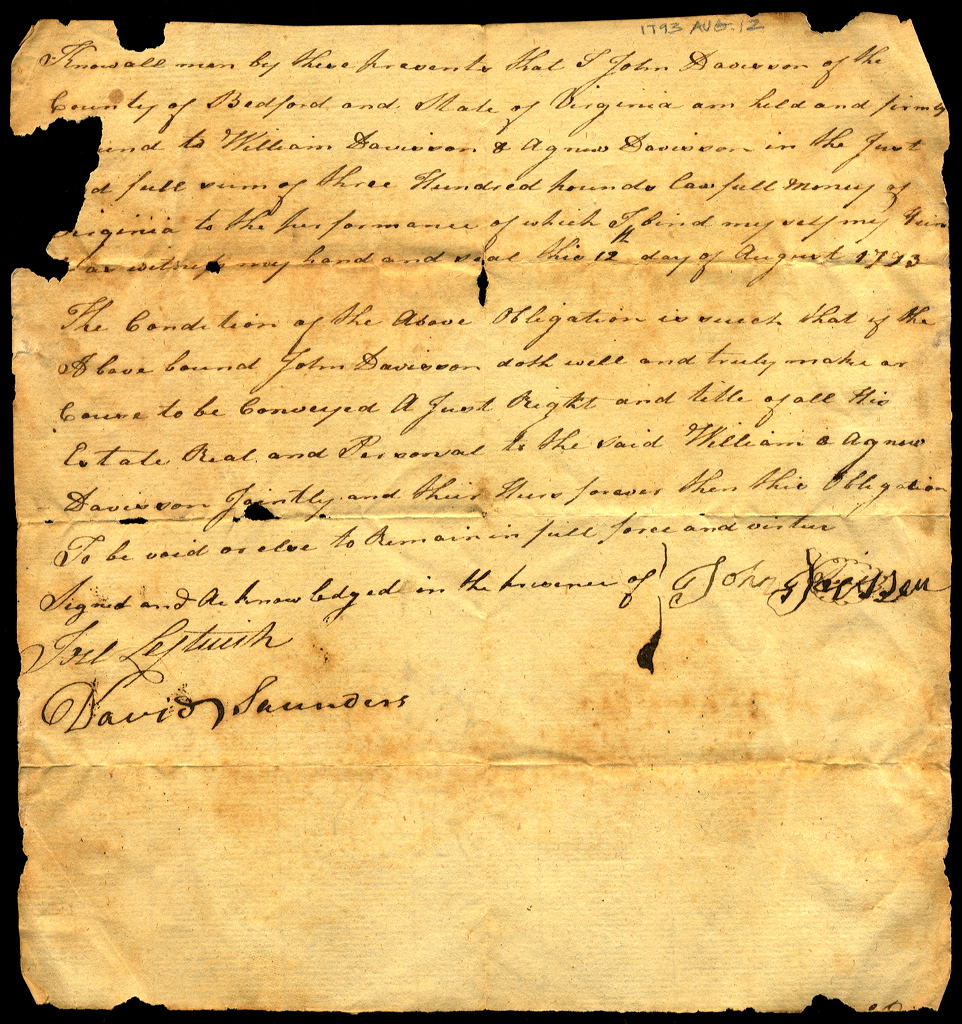 1793 AUG. 12
Know all men by these presents that I John Davisson of the
County of Bedford and State of Virginia am held and firmly
ound to William Davisson & Agnew Davisson in the Just
d full sum of three Hundred pounds Lawfull Money of
irginia to the performance of which I bind my self my
as witness my hand and seal this 12th day of August 1793
The Condition of the Above Obligation is such that if the
Above bound John Davisson doth well and truly make or
Couse to be Conveyed A Just Right and title of all His
Estate Real and Personal to the said William & Agnew
Davisson Jointly and their Heirs forever then this Obligation
To be void or else to Remain in full force and virtue
Signed and Acknowledged in the presence of John Davisson
Joel Leftwich
David Saunders